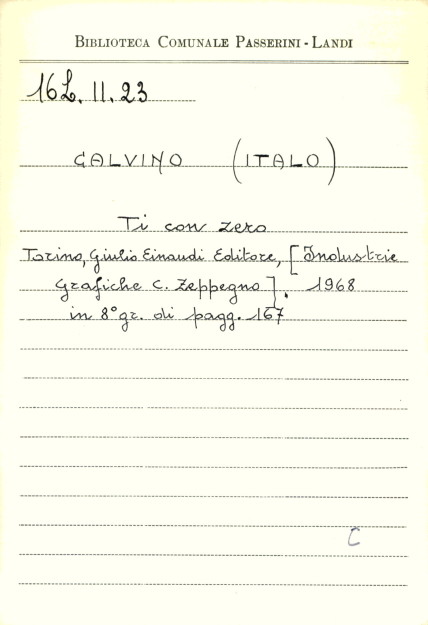 BIBLIOTECA COMUNALE PASSERINI - LANDI
16L. II. 23
CALVINO (ITALO)
Ti con zero
Torino, Giulio Einaudi Editore, [Industrie
Grafiche C. Zeppegno]. 1968
in 8° gr. di pagg. 167
C